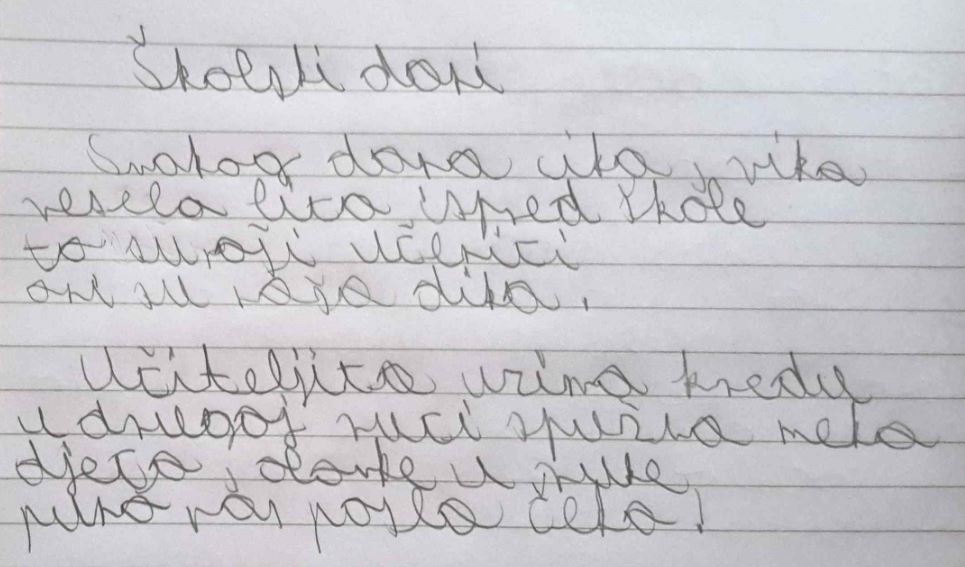 Školski dani
Svakog dana cika, vika
vesela lica ispred škole
to su naši učenici
oni su naša dika.
Učiteljica uzima kredu
u drugoj ruci spužva meka
djeca, olovke u ruke
puno nas posla čeka!